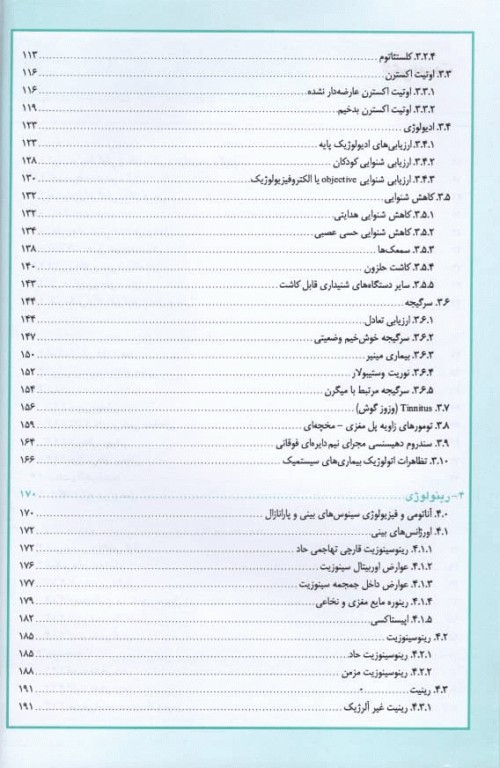 ۳.۲.۴. کلستئاتوم ۱۱۳
۳.۳. اوتیت اکسترن ۱۱۶
۳.۳.۱. اوتیت اکسترن عارضه‌دار نشده ۱۱۶
۳.۳.۲. اوتیت اکسترن بدخیم ۱۱۹
۳.۴. ادیولوژی ۱۲۳
۳.۴.۱. ارزیابی‌های ادیولوژیک پایه ۱۲۳
۳.۴.۲. ارزیابی شنوایی کودکان ۱۲۸
۳.۴.۳. ارزیابی شنوایی objective یا الکتروفیزیولوژیک ۱۳۰
۳.۵. کاهش شنوایی ۱۳۲
۳.۵.۱. کاهش شنوایی هدایتی ۱۳۲
۳.۵.۲. کاهش شنوایی حسی عصبی ۱۳۴
۳.۵.۳. سمعک‌ها ۱۳۸
۳.۵.۴. کاشت حلزون ۱۴۰
۳.۵.۵. سایر دستگاه‌های شنیداری قابل کاشت ۱۴۳
۳.۶. سرگیجه ۱۴۴
۳.۶.۱. ارزیابی تعادل ۱۴۴
۳.۶.۲. سرگیجه خوش‌خیم وضعیتی ۱۴۷
۳.۶.۳. بیماری منییر ۱۵۰
۳.۶.۴. نوریت وستیبولار ۱۵۲
۳.۶.۵. سرگیجه مرتبط با میگرن ۱۵۴
۳.۷. Tinnitus (وزوز گوش) ۱۵۶
۳.۸. تومورهای زاویه پل مغزی - مخچه‌ای ۱۵۹
۳.۹. سندروم دهیسنسی مجرای نیم‌دایره‌ای فوقانی ۱۶۴
۳.۱۰. تظاهرات اتولوژیک بیماری‌های سیستمیک ۱۶۶
۴- رینولوژی ۱۷۰
۴.۰. آناتومی و فیزیولوژی سینوس‌های بینی و پارانازال ۱۷۰
۴.۱. اورژانس‌های بینی ۱۷۲
۴.۱.۱. رینوسینوزیت قارچی تهاجمی حاد ۱۷۲
۴.۱.۲. عوارض اوربیتال سینوزیت ۱۷۶
۴.۱.۳. عوارض داخل جمجمه سینوزیت ۱۷۷
۴.۱.۴. رینوره مایع مغزی و نخاعی ۱۷۹
۴.۱.۵. اپیستاکسی ۱۸۲
۴.۲. رینوسینوزیت ۱۸۵
۴.۲.۱. رینوسینوزیت حاد ۱۸۵
۴.۲.۲. رینوسینوزیت مزمن ۱۸۸
۴.۳. رینیت ۱۹۱
۴.۳.۱. رینیت غیر آلرژیک ۱۹۱